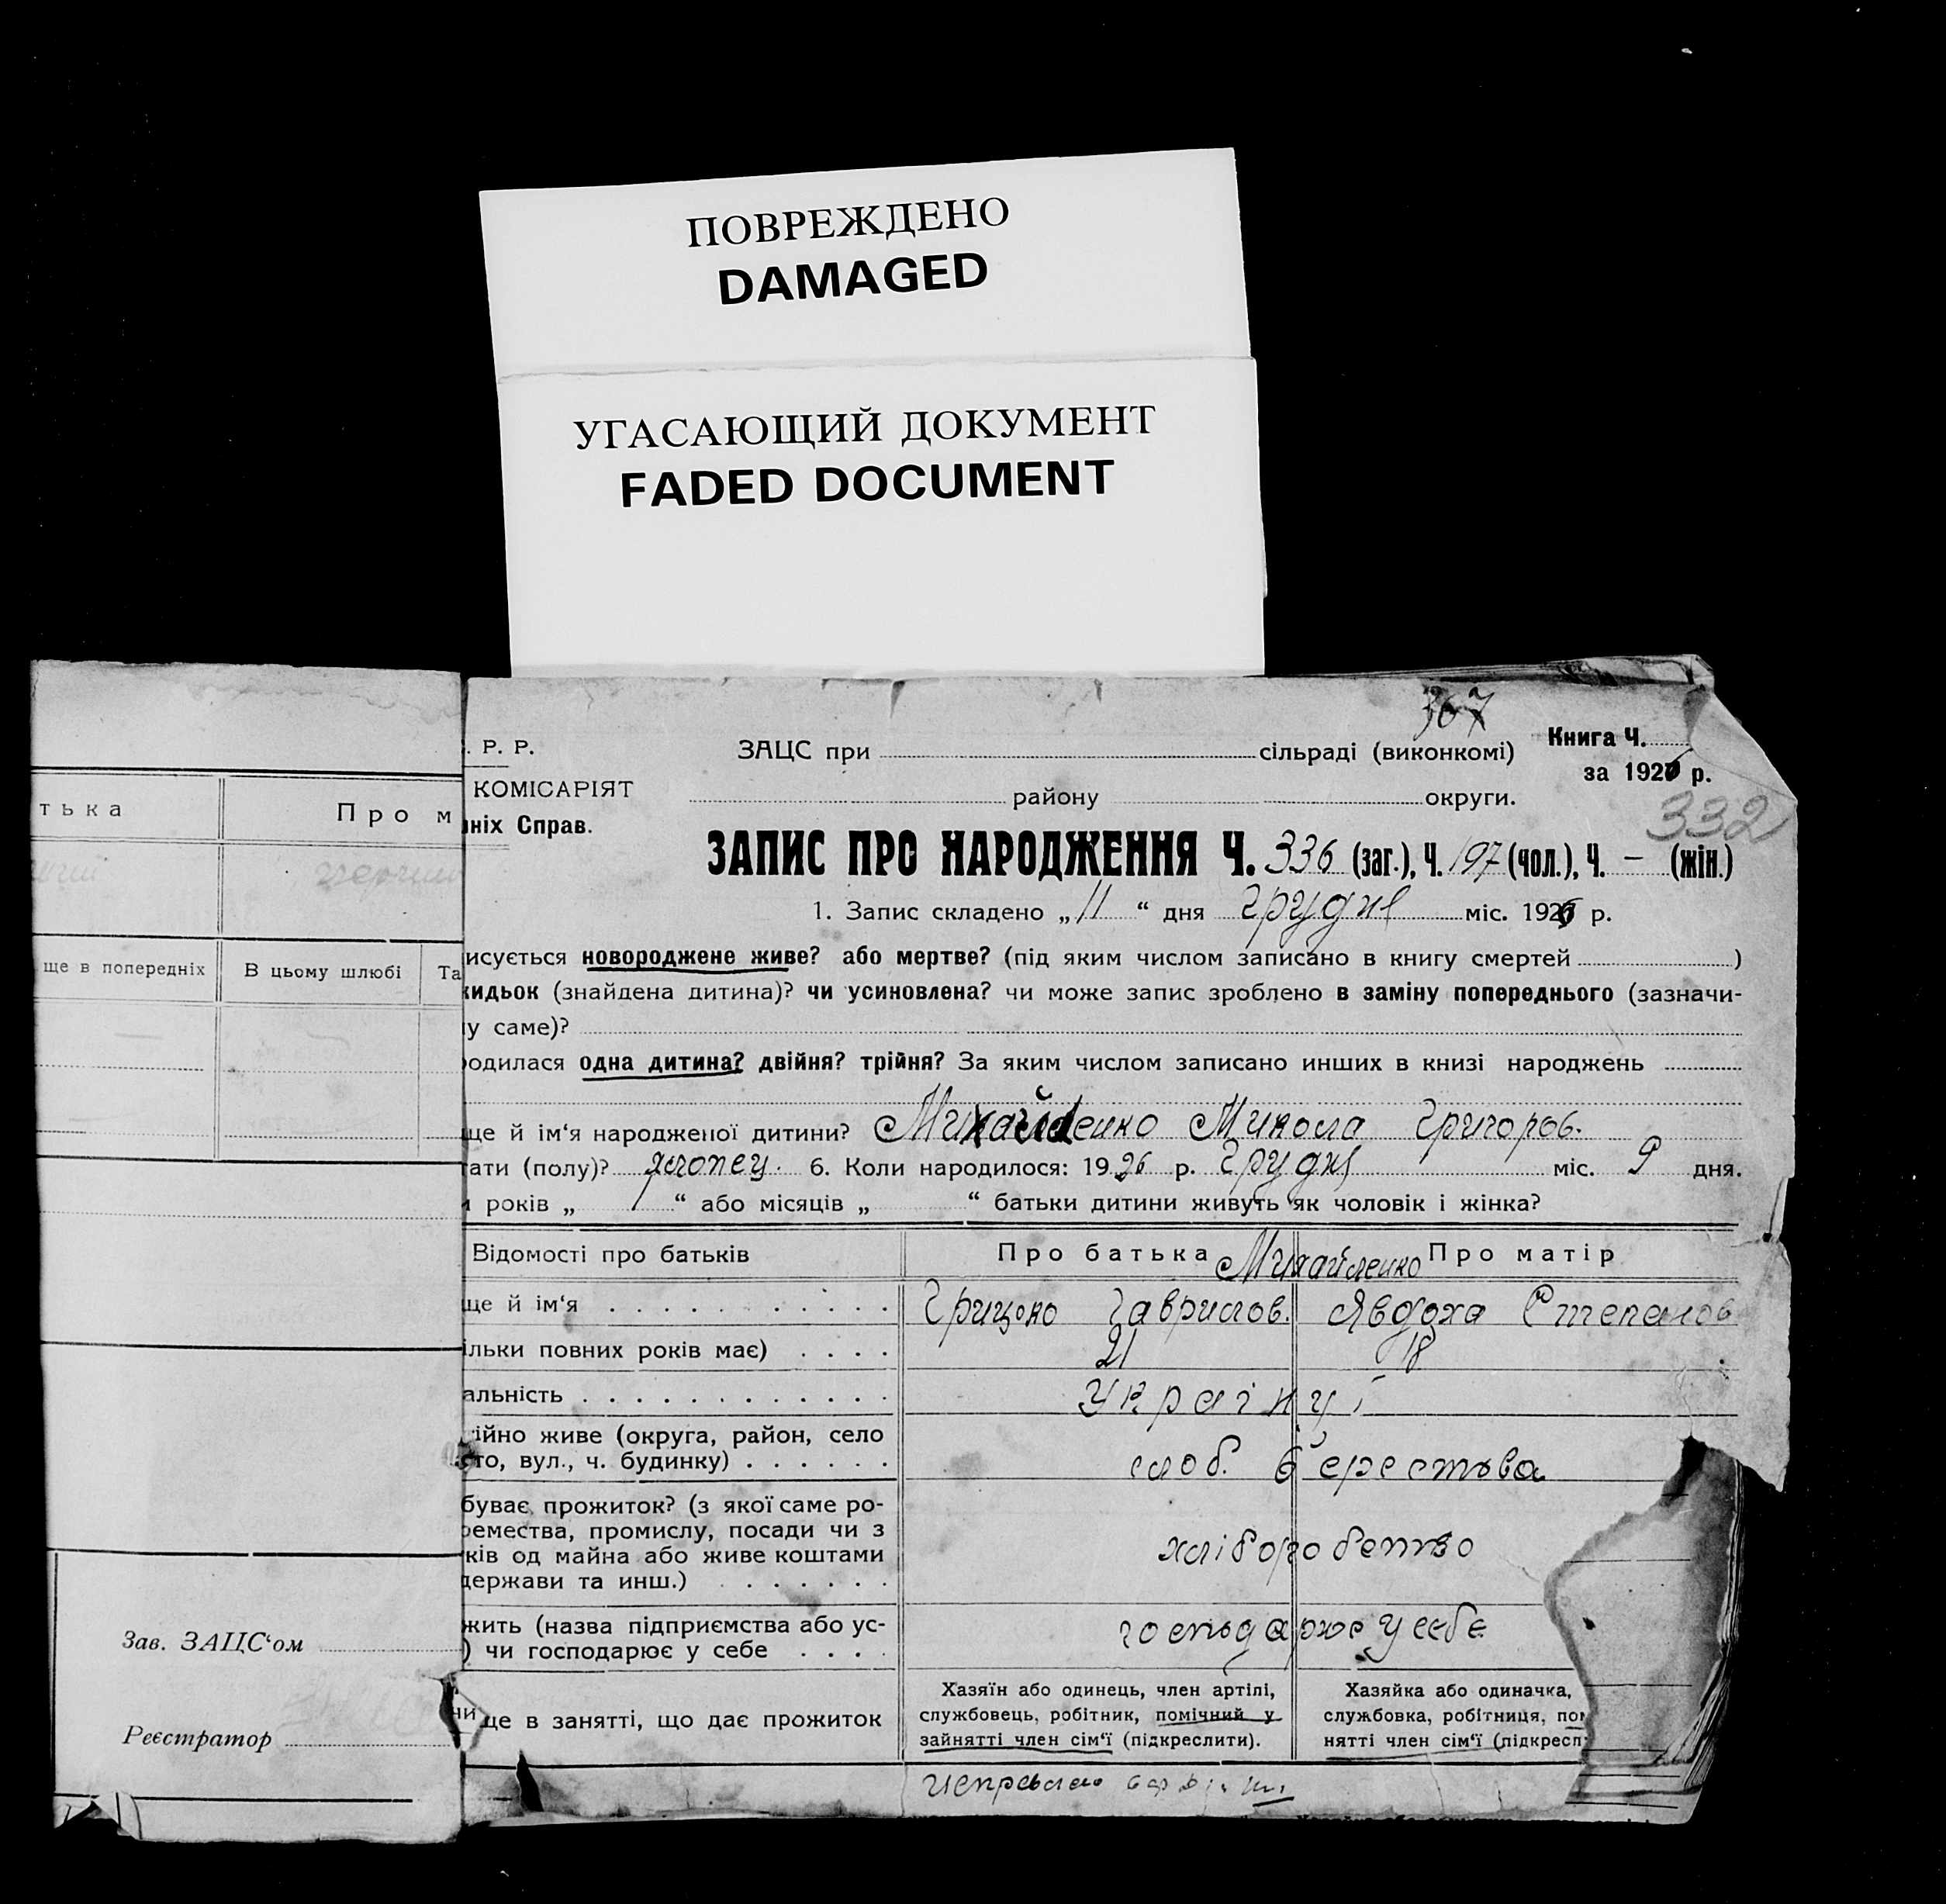 ПОВРЕЖДЕНО
DAMAGED
УГАСАЮЩИЙ ДОКУМЕНТ
FADED DOCUMENT
тька
Про м
ще в попередніх
В цьому шлюбі
Та
Зав. ЗАЦС‘ом
Реєстратор
367
. Р. Р.
ЗАЦС при сільраді (виконкомі)
Книга Ч.
за 1926 р.
КОМІСАРІЯТ
району округи.
ніх Справ.
332
ЗАПИС ПРО НАРОДЖЕННЯ Ч. 336 (заг.), Ч. 197 (чол.), Ч. — (жін.)
1. Запис складено „ 11 “ дня Грудня міс. 1926 р.
исується новороджене живе? або мертве? (під яким числом записано в книгу смертей )
кидьок (знайдена дитина)? чи усиновлена? чи може запис зроблено в заміну попереднього (зазначи-
у саме)?
одилася одна дитина? двійня? трійня? За яким числом записано инших в книзі народжень
ще й ім‘я народженої дитини? Михайленко Микола Григоров.
тати (полу)? хлопец. 6. Коли народилося: 1926 р. Грудня міс. 9 дня.
років „ 1 “ або місяців „ “ батьки дитини живуть як чоловік і жінка?
Відомості про батьків
Про батька
Михайленко
Про матір
ще й ім‘я
Грицько Гаврилов.
Явдоха Степанов
ільки повних років має)
21
18
альність
Українці
ійно живе (округа, район, село
сто, вул., ч. будинку)
слоб. Берестова
буває прожиток? (з якої саме ро-
ремества, промислу, посади чи з
ків од майна або живе коштами
держави та инш.)
хліборобство
жить (назва підприємства або ус-
) чи господарює у себе
господарює у себе
ще в занятті, що дає прожиток
Хазяїн або одинець, член артілі,
службовець, робітник, помічний у
зайнятті член сім‘ї (підкреслити).
Хазяйка або одиначка,
службовка, робітниця, пом
нятті член сім‘ї (підкресл